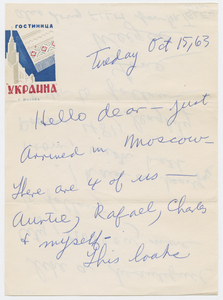 ГОСТИНИЦА
УКРАИНА
Tuesday Oct 15, 63
Hello dear — just
Arrived in Moscow—
There are 4 of us —
Auntie, Rafael, Charles
& myself—
This looks